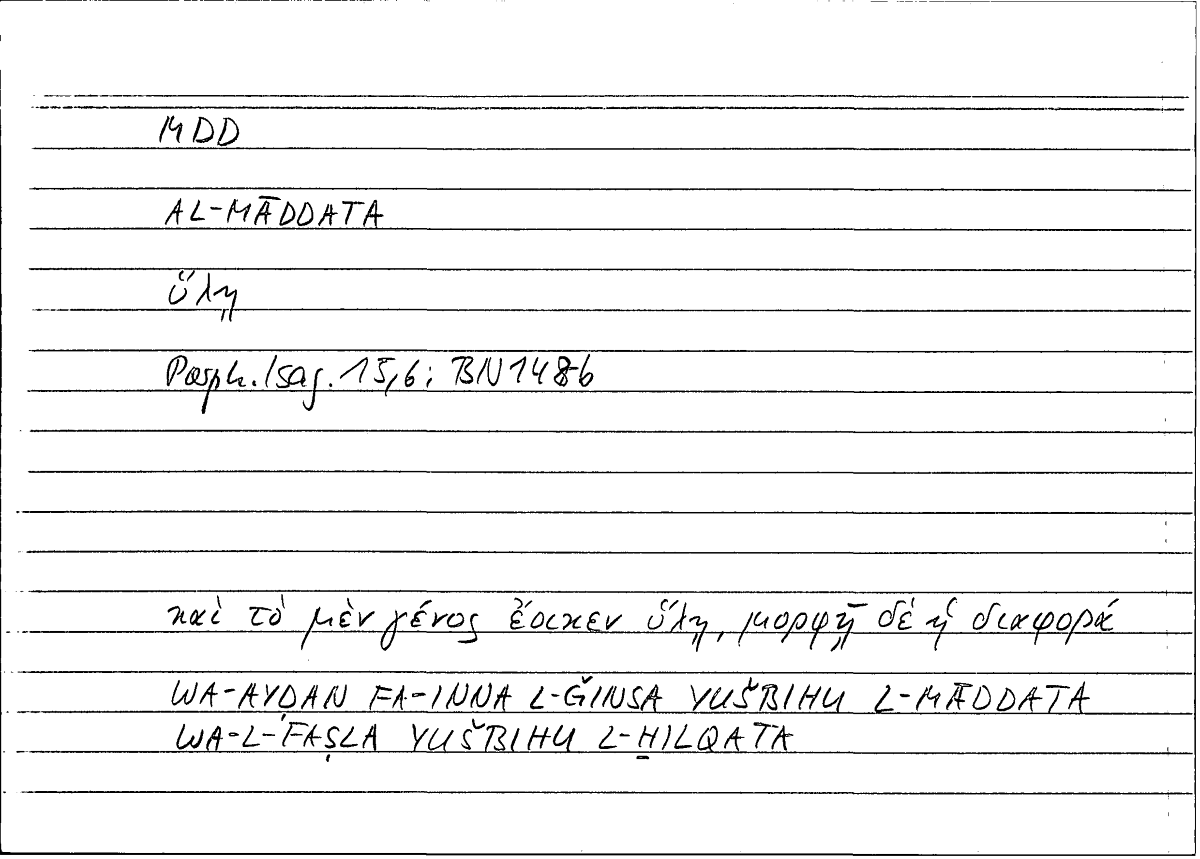 MDD
AL-MĀDDATA
ὕλῃ
Porph. Isag. 15,6; BN 148b
καὶ τὸ μὲν γένος ἔοικεν ὕλῃ, μορφῇ δὲ ἡ διαφορά
WA-AYḌAN FA-INNA L-ǦINSA YUŠBIHU L-MĀDDATA
WA-L-FAṢLA YUŠBIHU L-ḪILQATA